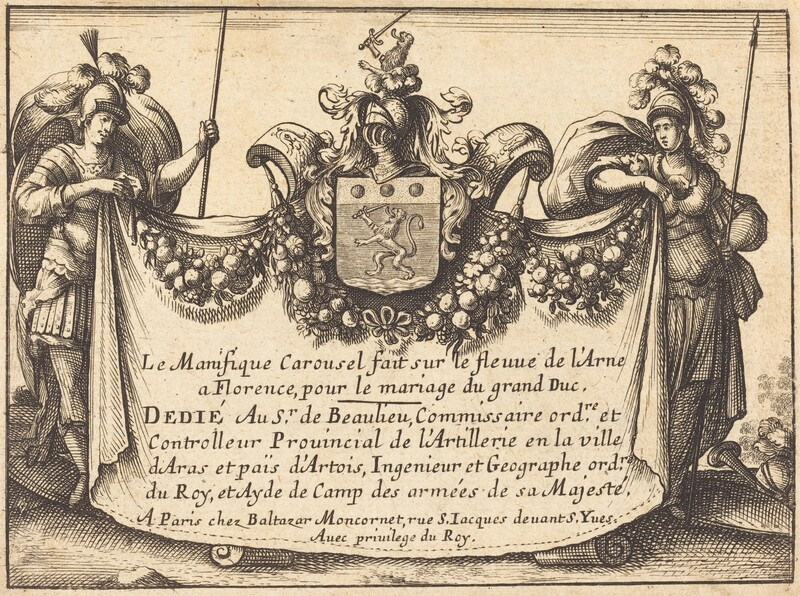 Le Manifique Carousel fait sur le fleuue de l'Arne
a Florence, pour le mariage du grand Duc.
DEDIÉ Au S.r de Beaulieu, Commissaire ord.re et
Controlleur Provincial de l'Artillerie en la ville
d'Aras et païs d'Artois, Ingenieur et Geographe ord.re
du Roy, et Ayde de Camp des armées de sa Majesté.
A Paris chez Baltazar Moncornet, rue S. Iacques deuant S. Yues.
Auec priuilege du Roy.